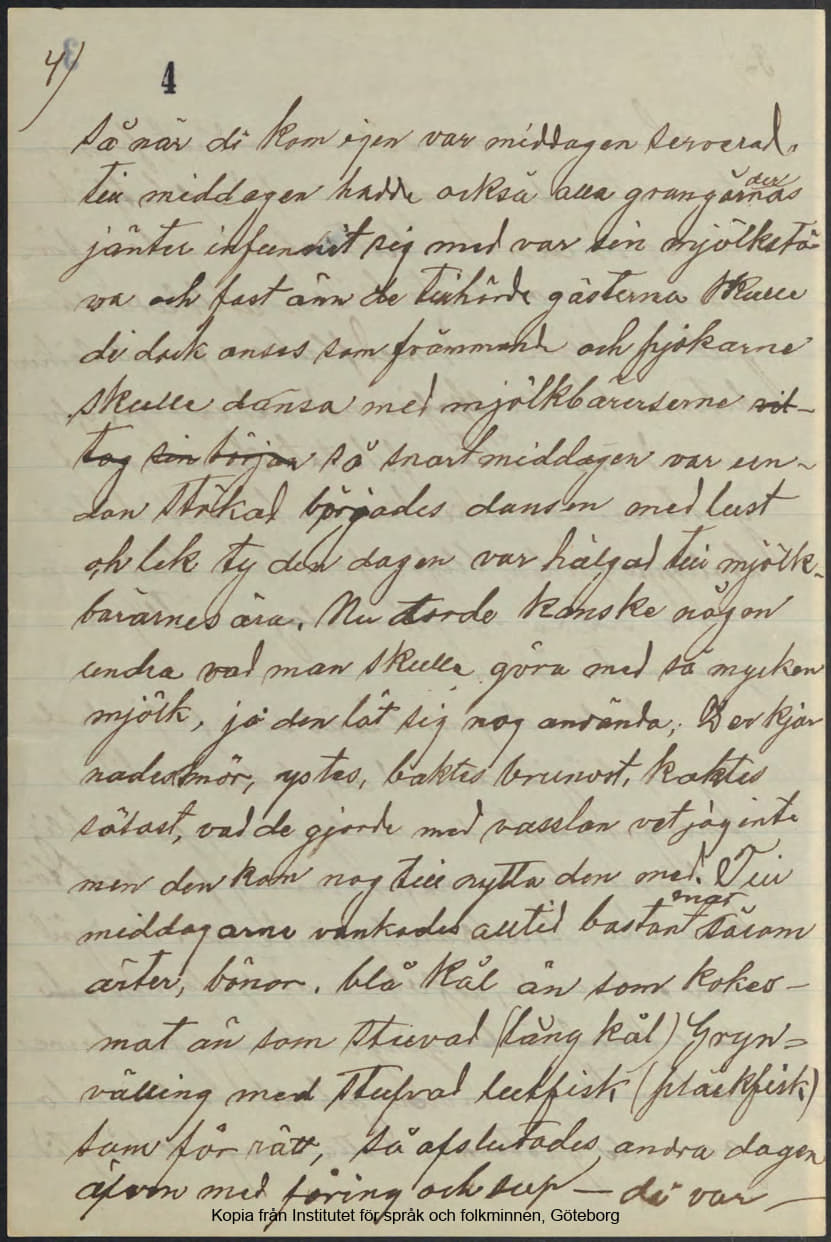 4)
4
så när di kom igen var middagen serverad.
till middagen hadde också alla grangårdernas
jänter infunnit sig med var sin mjölkstä-
va och fast änn de tillhörde gästerna skulle
di dock anses som främmande och pjokarne
skulle dansa med mjölkbärerserne
tog sin början så snart middagen var un-
dan stökad börjades dansen med lust
oh lek ty den dagen var hälgad till mjölk-
barärnes ära. Nu torde kanske någon
undra vad man skulle göra med så mycken
mjölk, jo den låt sig nog använda, Der kjär
nades smör, ystes, baktes brunost, koktes
sötost, vad de gjorde med vasslan vet jag inte
men den kom nog till nytta den med. Till
middagarne vankades alltid bastant mat såsom
ärter, bönor, blå kål än som kokes-
mat än som stuvad (lång kål) Gryn=
välling med stufvad lutfisk (pläckfisk)
som för rätt, så afslutades andra dagen
äfven med föring och sup — di var —
Kopia från Institutet för språk och folkminnen, Göteborg